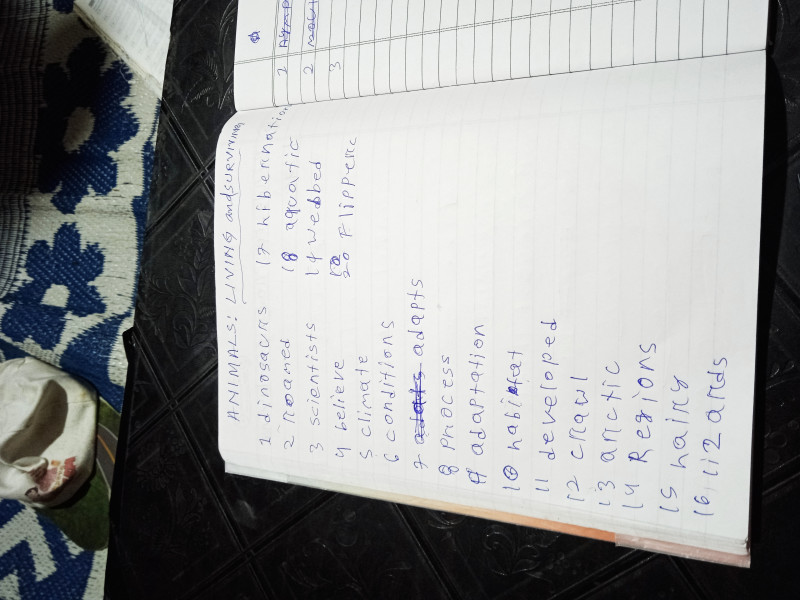 ANIMALS: LIVING and SURVIVING
1 dinosaurs
2 roamed
3 scientists
4 believe
5 climate
6 conditions
7 adapts
8 process
9 adaptation
10 habitat
11 developed
12 crawl
13 arctic
14 Regions
15 hairy
16, li2ards
17 hibernation
18 aquatic
19 webbed
20 Flippers
1
2
3